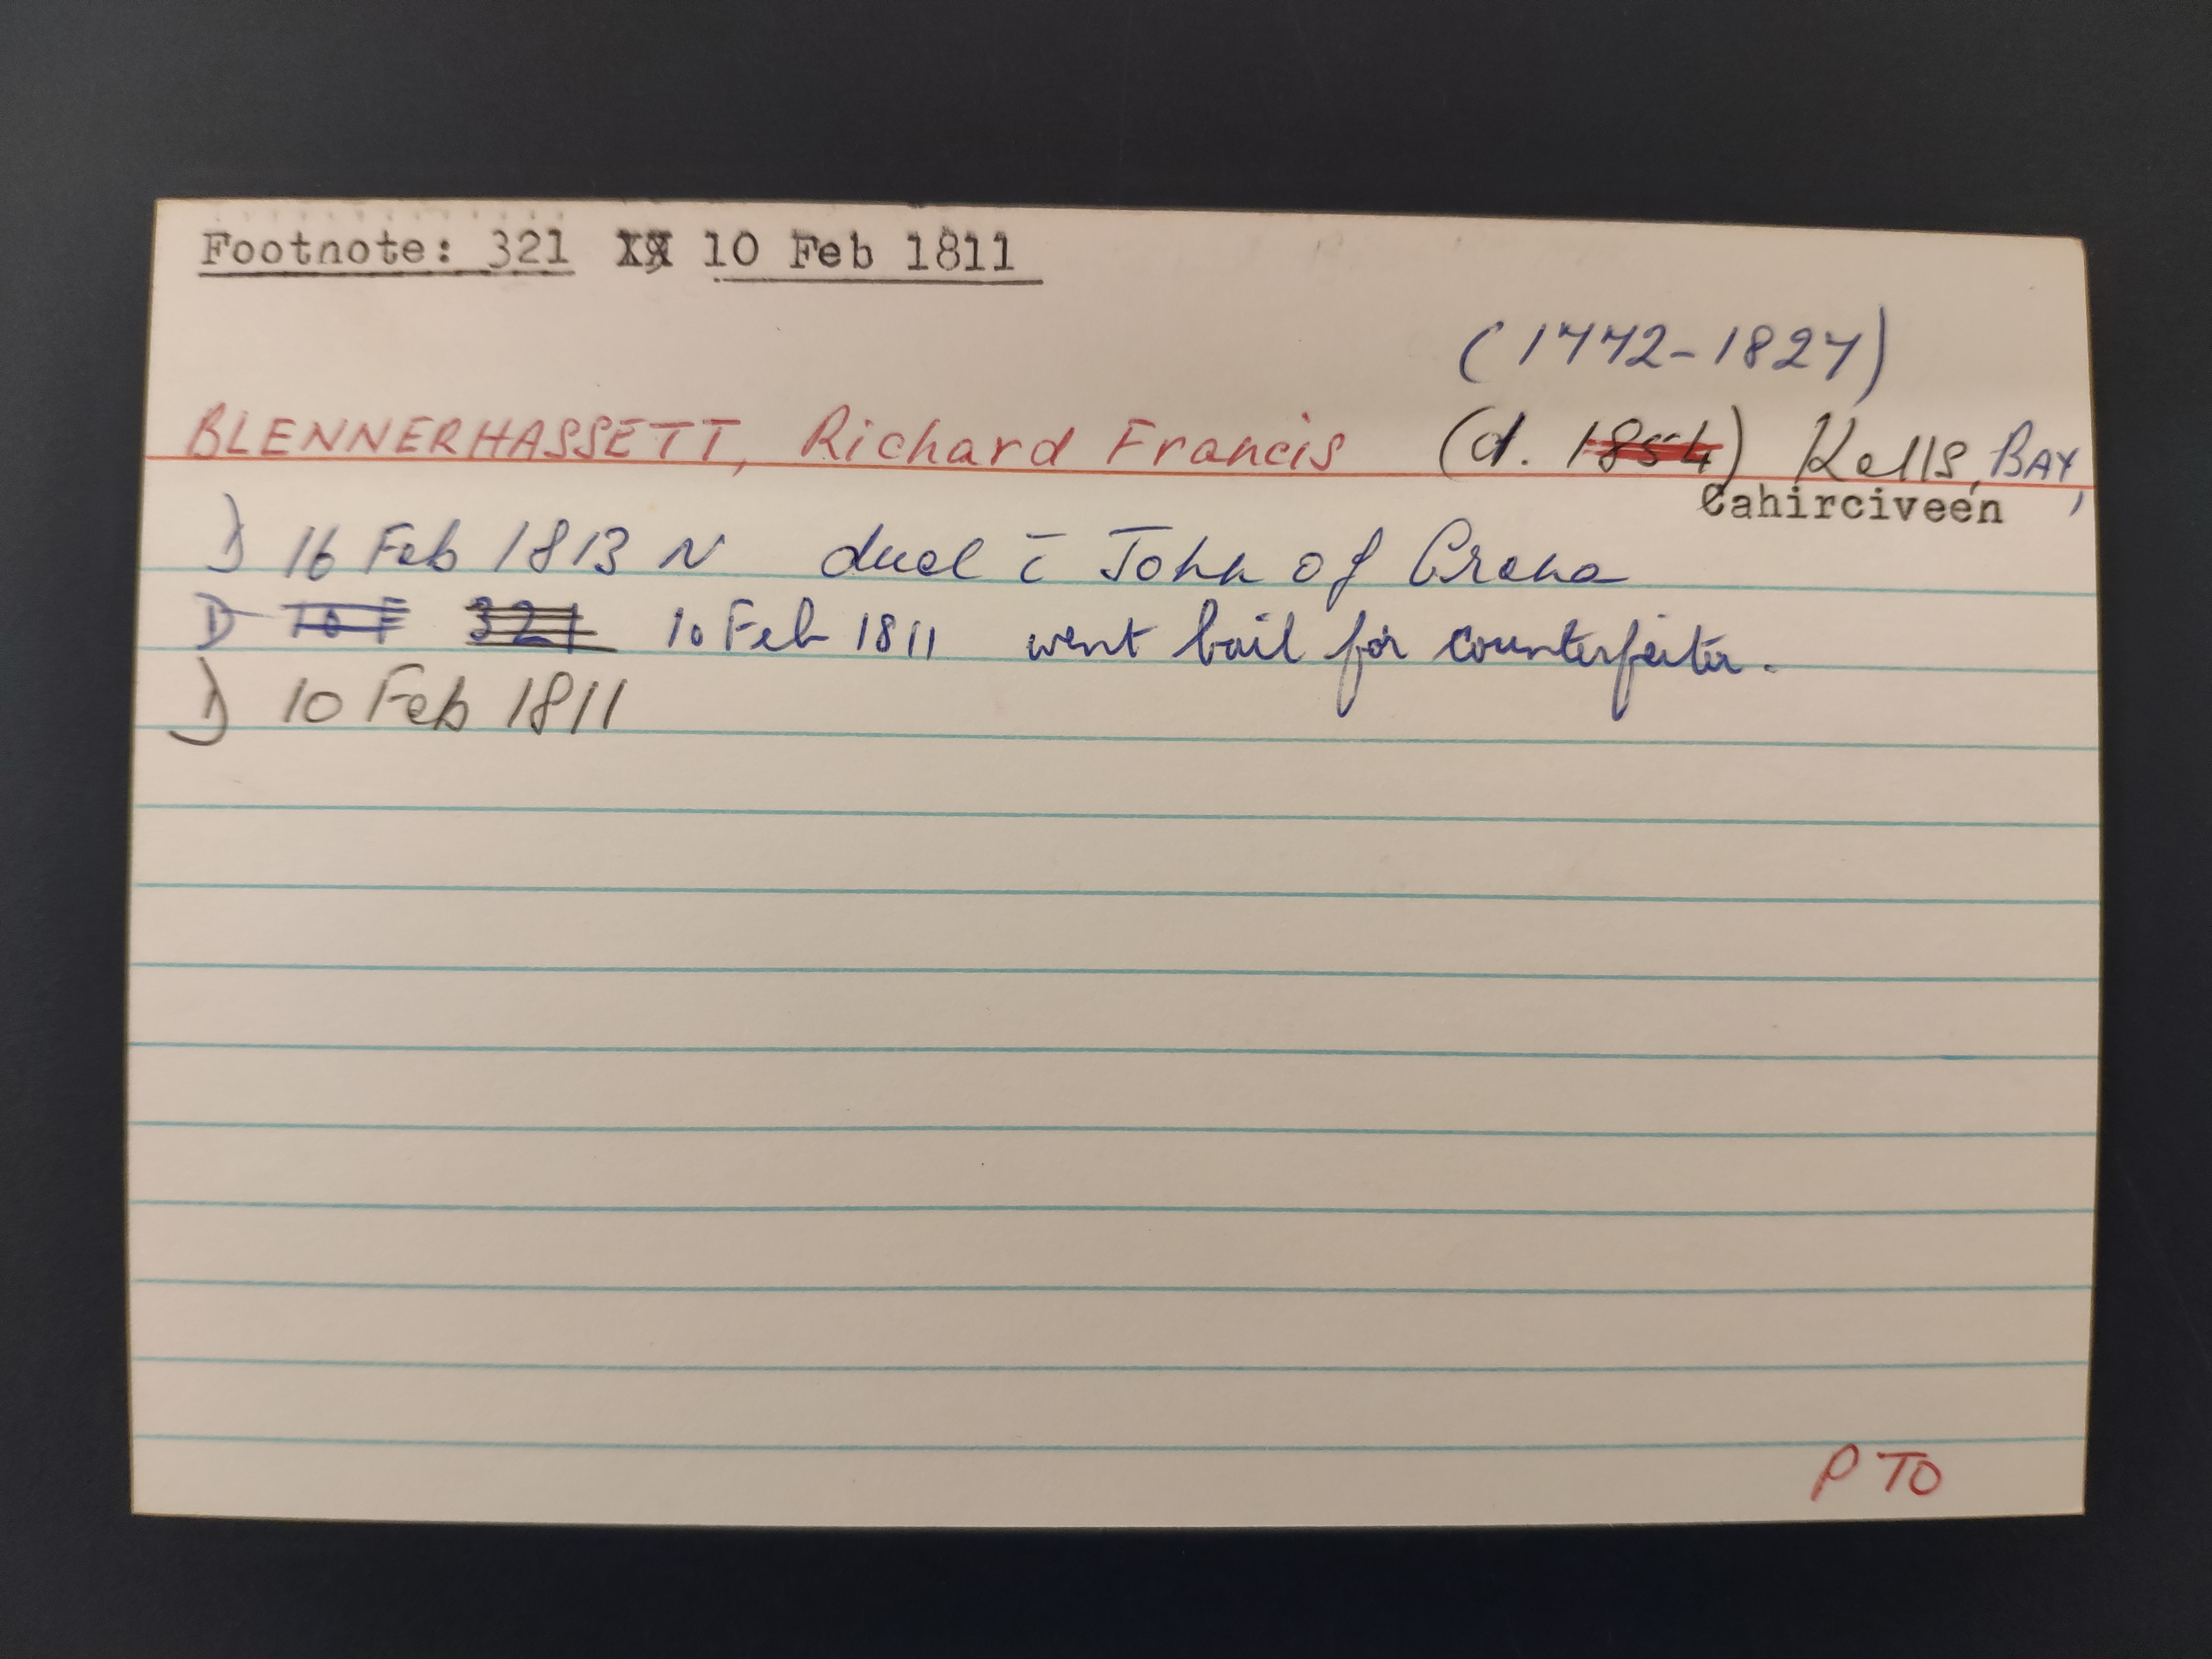 Footnote: 321 XX 10 Feb 1811
(1772-1827)
BLENNERHASSETT, Richard Francis (d. 1854) Kells, BAY,
Cahirciveen
D 16 Feb 1813 N duel c̄ John of Crena
D 10 F 321 10 Feb 1811 went bail for counterfeiter.
D 10 Feb 1811
P TO